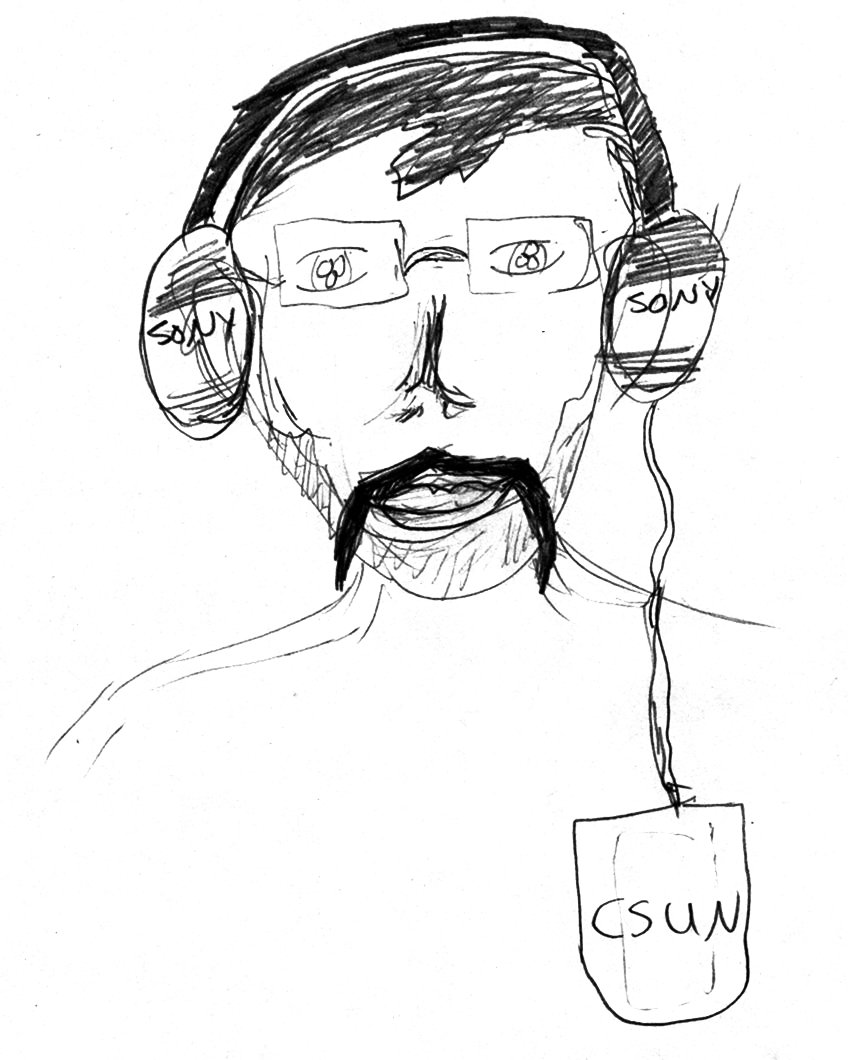 SONY
SONY
CSUN